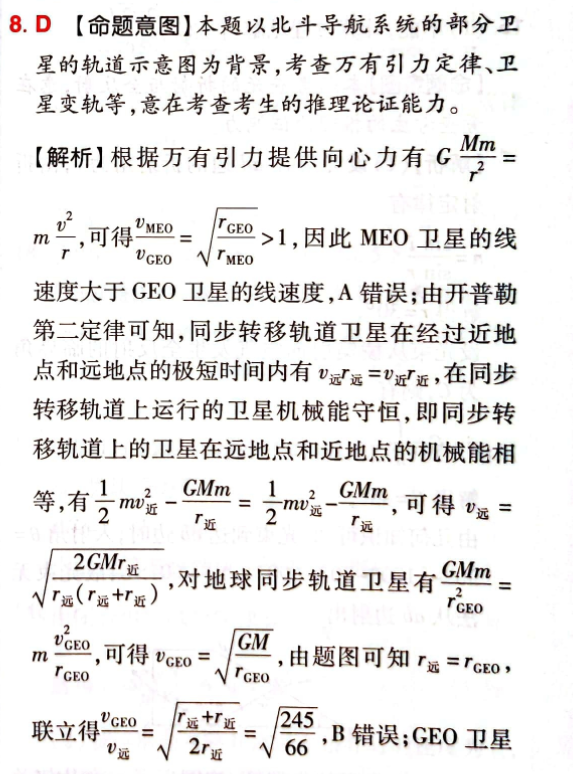 8. D 【命题意图】本题以北斗导航系统的部分卫
星的轨道示意图为背景,考查万有引力定律、卫
星变轨等,意在考查考生的推理论证能力。
【解析】根据万有引力提供向心力有 G\frac{Mm}{r^2}=
m\frac{v^2}{r},可得\frac{v_{MEO}}{v_{GEO}}=\sqrt{\frac{r_{GEO}}{r_{MEO}}}>1,因此 MEO 卫星的线
速度大于 GEO 卫星的线速度,A 错误;由开普勒
第二定律可知,同步转移轨道卫星在经过近地
点和远地点的极短时间内有 v_远r_远=v_近r_近,在同步
转移轨道上运行的卫星机械能守恒,即同步转
移轨道上的卫星在远地点和近地点的机械能相
等,有\frac{1}{2}mv_近^2-\frac{GMm}{r_近}=\frac{1}{2}mv_远^2-\frac{GMm}{r_远},可得 v_远=
\sqrt{\frac{2GMr_近}{r_远(r_远+r_近)}},对地球同步轨道卫星有\frac{GMm}{r_{GEO}^2}=
m\frac{v_{GEO}^2}{r_{GEO}},可得 v_{GEO}=\sqrt{\frac{GM}{r_{GEO}}},由题图可知 r_远=r_{GEO},
联立得\frac{v_{GEO}}{v_远}=\sqrt{\frac{r_远+r_近}{2r_近}}=\sqrt{\frac{245}{66}},B 错误;GEO 卫星